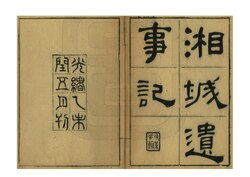 湘城遺
事記
光緒乙未
閏五月刊